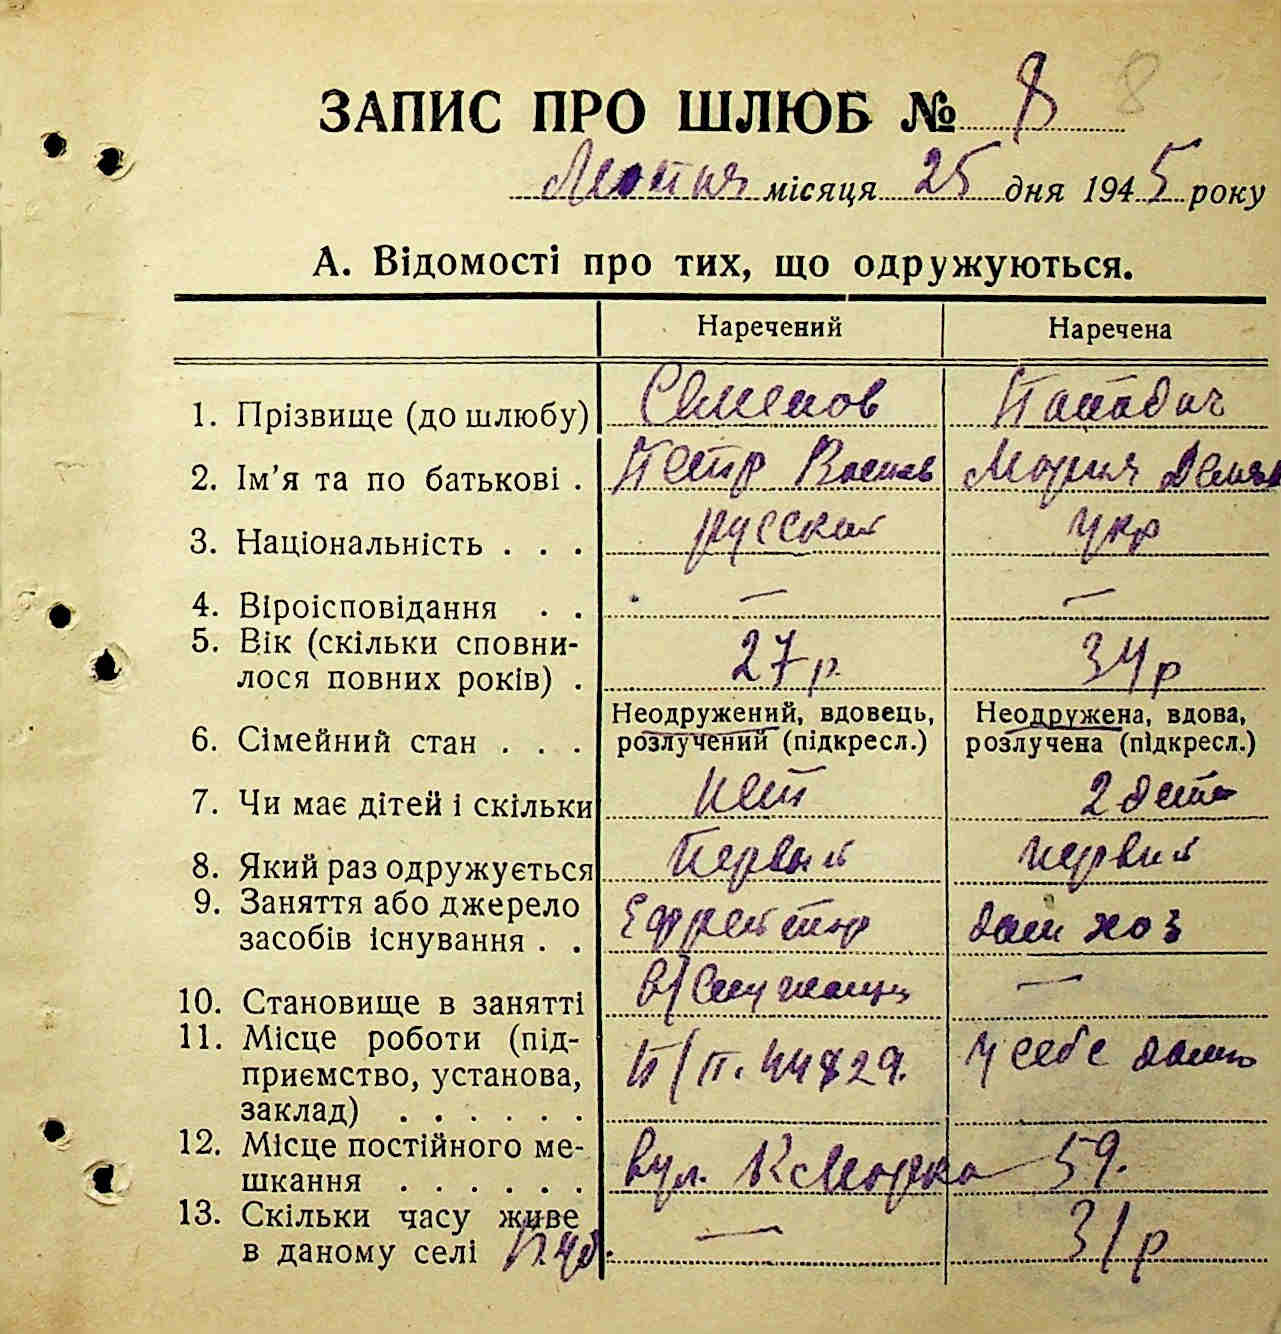 ЗАПИС ПРО ШЛЮБ № 8 8
місяця 25 дня 1945 року
А. Відомості про тих, що одружуються.
Наречений Наречена
1. Прізвище (до шлюбу) Семенов
2. Ім'я та по батькові . Петр Васил Мария Демян
3. Національність . . . русский укр
4. Віроісповідання . . — —
5. Вік (скільки сповни-
лося повних років) . 27 р. 34 р
Неодружений, вдовець, Неодружена, вдова,
6. Сімейний стан . . . розлучений (підкресл.) розлучена (підкресл.)
7. Чи має дітей і скільки нет 2 дети
8. Який раз одружується Первый первый
9. Заняття або джерело
засобів існування . . Ефрейтор дом хоз
10. Становище в занятті в/служащи —
11. Місце роботи (під-
приємство, установа, П/п. 44829. у себе дома
заклад) . . . . . .
12. Місце постійного ме-
шкання . . . . . . вул. К Маркса 59.
13. Скільки часу живе
в даному селі — 31 р